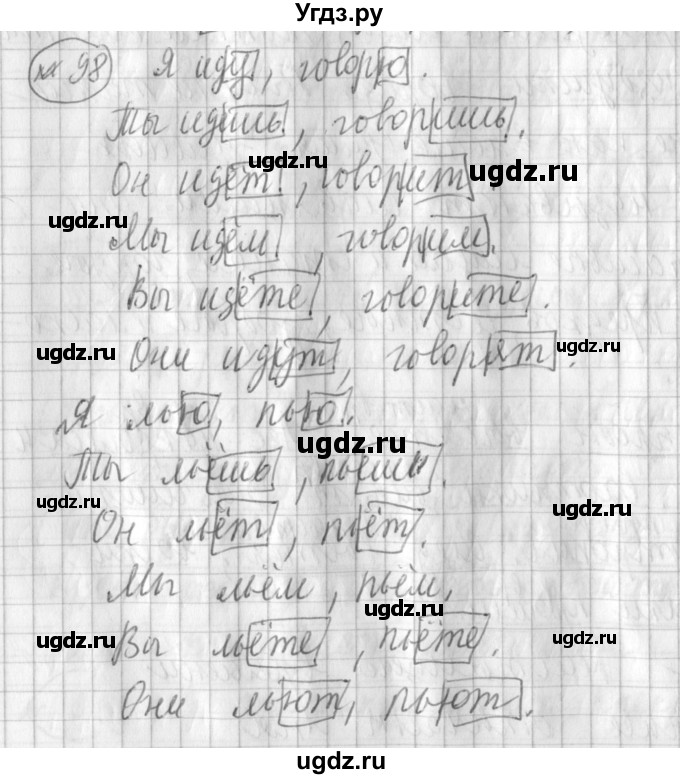 Угдз.ру
№ 98 Я иду, говорю.
Ты идёшь, говоришь.
ugdz.ru
Он идёт, говорит.
ugdz.ru
ugdz.ru
Мы идём, говорим.
Вы идёте, говорите.
ugdz.ru
ugdz.ru
Они идут, говорят.
Я лью, пью.
ugdz.ru
Ты льёшь, пьёшь.
ugdz.ru
ugdz.ru
Он льёт, пьёт.
Мы льём, пьём,
ugdz.ru
ugdz.ru
ugdz.ru
Вы льёте, пьёте.
Они льют, пьют.
ugdz.ru